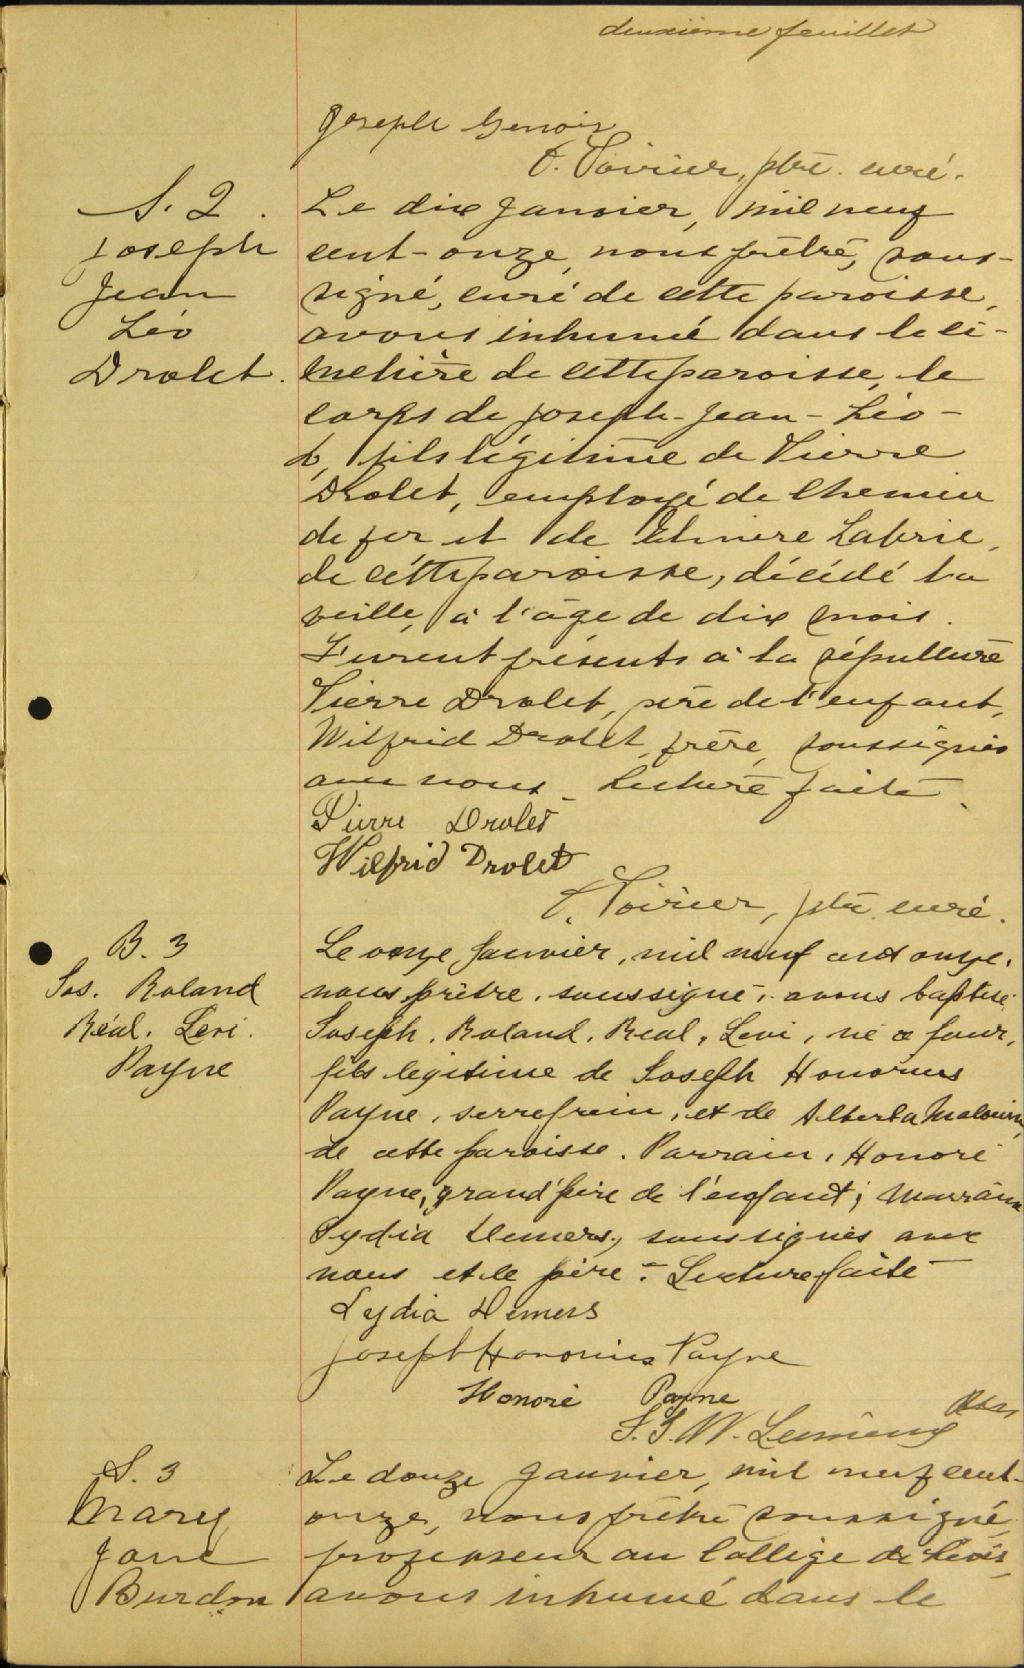 deuxième feuillet
Joseph Genois
Poirier, ptre. curé.
S. 2.
Joseph
Jean
Léo
Drolet.
Le dix Janvier, mil neuf
cent-onze, nous prêtre, sous-
signé, curé de cette paroisse,
avons inhumé dans le ci-
metière de cette paroisse, le
corps de Joseph-Jean-Léo-
fils légitime de Pierre
Drolet, employé de Chemin
de fer et de Labrie,
de cette paroisse, décédé la
veille, à l'âge de dix mois.
Furent présents à la sépulture
Pierre Drolet, père de l'enfant,
Wilfrid Drolet, frère, soussignés
avec nous. Lecture faite.
Pierre Drolet
Wilfrid Drolet
Poirier, ptre curé.
B. 3
Jos. Roland
Réal. Levi.
Payne
Le onze Janvier, mil neuf cent onze,
nous prêtre, soussigné, avons baptisé
Joseph, Roland, Real, Levi, né ce jour,
fils légitime de Joseph Honorius
Payne, serrefrein, et de Alberta Malouin,
de cette paroisse. Parrain, Honoré
Payne, grand'père de l'enfant; Marraine
Lydia Demers, soussignés avec
nous et le père. Lecture faite
Lydia Demers
Joseph Honorius Payne
Honoré Payne
Lemieux
S. 3
Mary
Jane
Burdon
Le douze Janvier, mil neuf cent-
onze, nous prêtre soussigné,
professeur au Collège de Lévis,
avons inhumé dans le